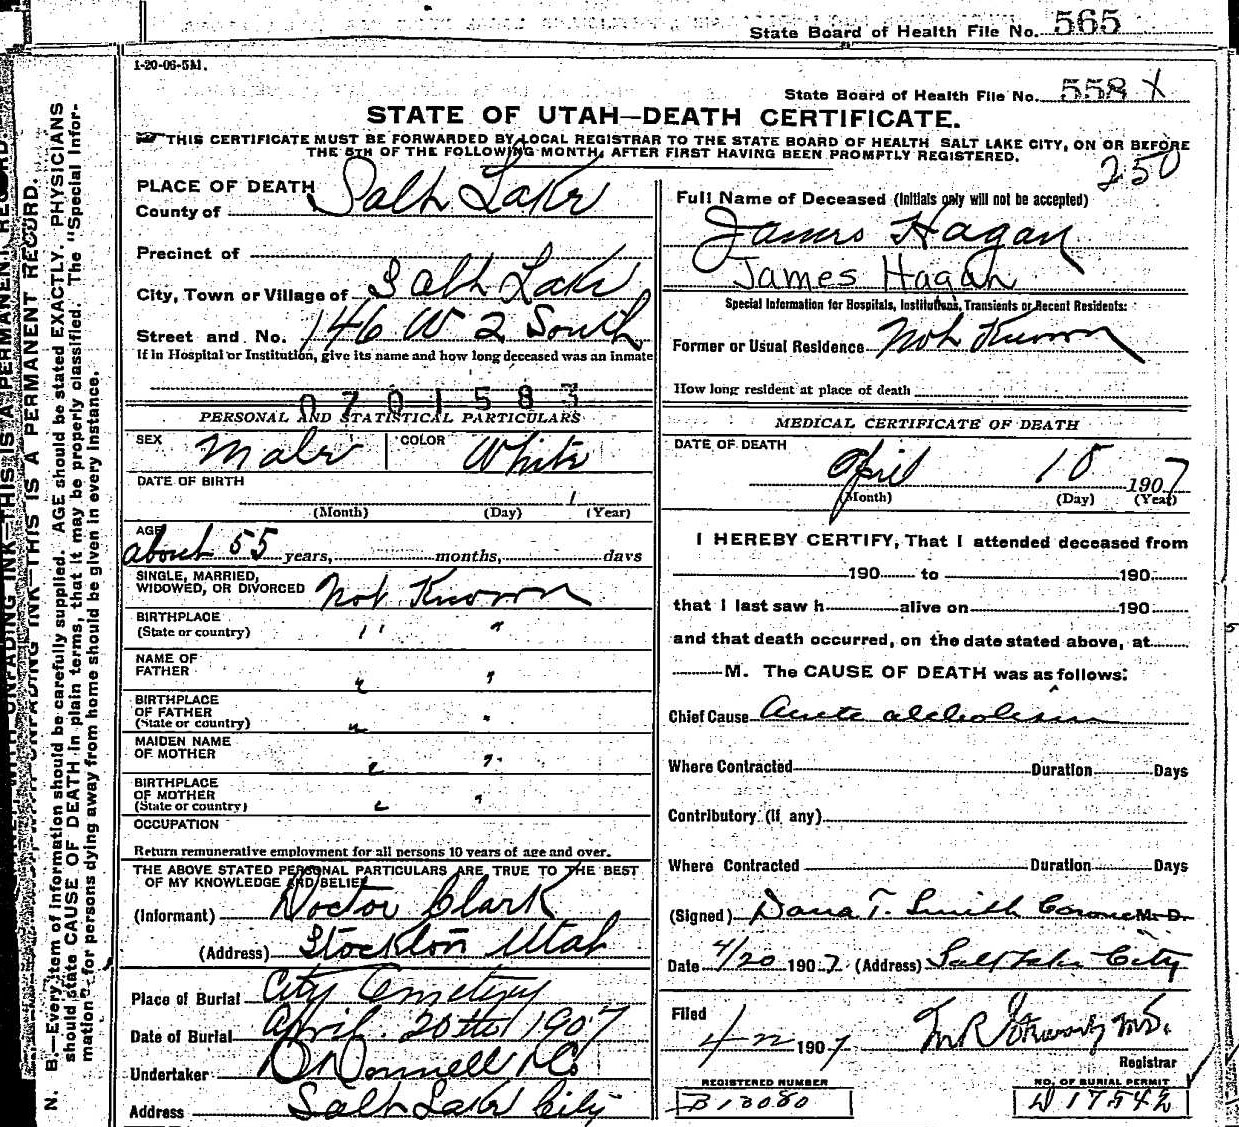 State Board of Health File No. 565
1-20-06-5M.
State Board of Health File No. 558 X
STATE OF UTAH—DEATH CERTIFICATE.
THIS CERTIFICATE MUST BE FORWARDED BY LOCAL REGISTRAR TO THE STATE BOARD OF HEALTH SALT LAKE CITY, ON OR BEFORE
THE 5TH OF THE FOLLOWING MONTH, AFTER FIRST HAVING BEEN PROMPTLY REGISTERED.
250
PLACE OF DEATH
County of Salt Lake
Precinct of
City, Town or Village of Salt Lake
Street and No. 146 W 2 South
If in Hospital or Institution, give its name and how long deceased was an inmate
0701583
PERSONAL AND STATISTICAL PARTICULARS
SEX Male COLOR White
DATE OF BIRTH
1
(Month) (Day) (Year)
AGE about 55 years, months, days
SINGLE, MARRIED,
WIDOWED, OR DIVORCED Not Known
BIRTHPLACE
(State or country) " "
NAME OF
FATHER " "
BIRTHPLACE
OF FATHER
(State or country) " "
MAIDEN NAME
OF MOTHER " "
BIRTHPLACE
OF MOTHER
(State or country) " "
OCCUPATION
Return remunerative employment for all persons 10 years of age and over.
THE ABOVE STATED PERSONAL PARTICULARS ARE TRUE TO THE BEST
OF MY KNOWLEDGE AND BELIEF
(Informant) Doctor Clark
(Address) Stockton Utah
Place of Burial City Cemetery
Date of Burial April 20th 1907
Undertaker O'Donnell & Co.
Address Salt Lake City
Full Name of Deceased (Initials only will not be accepted)
James Hagan
James Hagan
Special Information for Hospitals, Institutions, Transients or Recent Residents:
Former or Usual Residence Not Known
How long resident at place of death
MEDICAL CERTIFICATE OF DEATH
DATE OF DEATH
April 18 1907
(Month) (Day) (Year)
I HEREBY CERTIFY, That I attended deceased from
190 to 190
that I last saw h alive on 190
and that death occurred, on the date stated above, at
M. The CAUSE OF DEATH was as follows:
Chief Cause Acute alcholism
Where Contracted Duration Days
Contributory (if any)
Where Contracted Duration Days
(Signed) Dana T. Smith Coroner M. D.
Date 4/20 1907 (Address) Salt Lake City
Filed
4/22 1907 M.D.
Registrar
REGISTERED NUMBER
B13080
NO. OF BURIAL PERMIT
N. B.—Every item of information should be carefully supplied. AGE should be stated EXACTLY. PHYSICIANS
should state CAUSE OF DEATH in plain terms, that it may be properly classified. The "Special Infor-
mation" for persons dying away from home should be given in every instance.
THIS IS A PERMANENT RECORD.